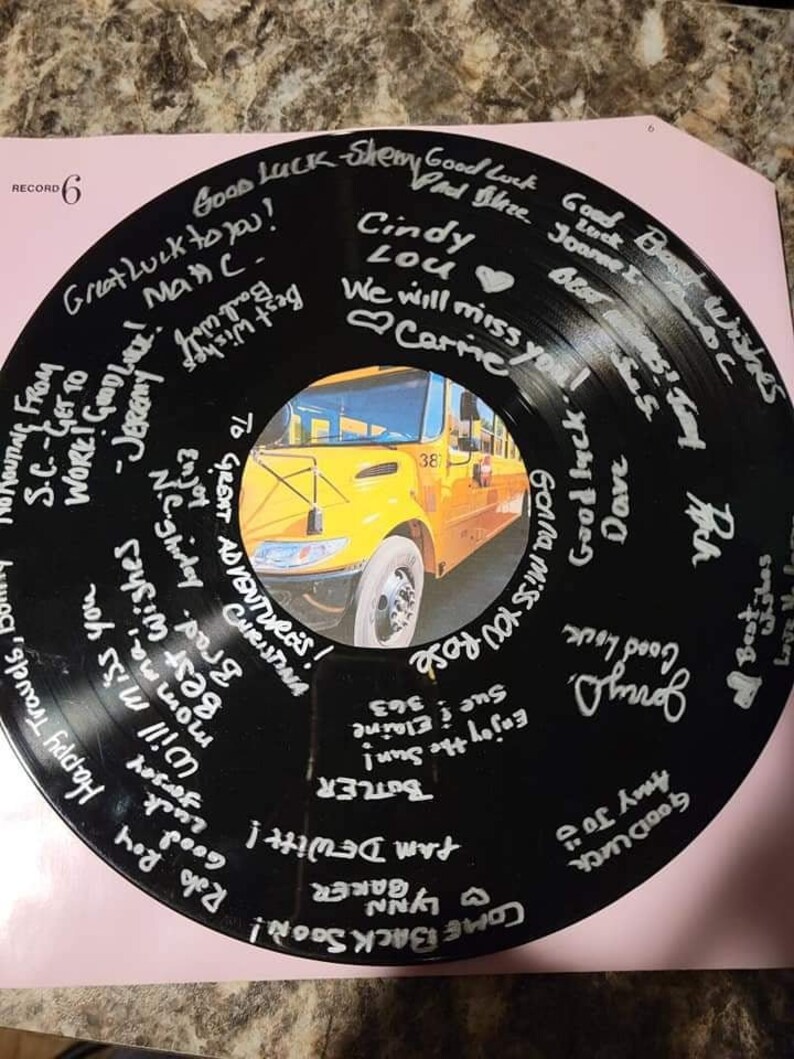 6
RECORD 6
GOOD LUCK - Sherry
Good Luck
Good
Luck
Joanne
Best Wishes
Great Luck to you!
Matt C.
Cindy
Lou ♡
We will miss you!
♡ Carrie
Best Wishes
FROM
S.C. - GET TO
WORK! GOOD LUCK!
- JEREMY
Good luck
Dave
38
TO GREAT ADVENTURES!
CHRISTINA
GONNA MISS YOU ROSE
Enjoy
Will miss you
momma
Best Wishes
Brad
Best
Wishes
Good Luck
Happy Travels,
Rob Roy
Good
Luck
Enjoy the Sun!
Sue & Elaine
363
BUTLER
PAM DEWITT!
♡ LYNN
BAKER
COME BACK SOON!
GOOD LUCK
AMY JO